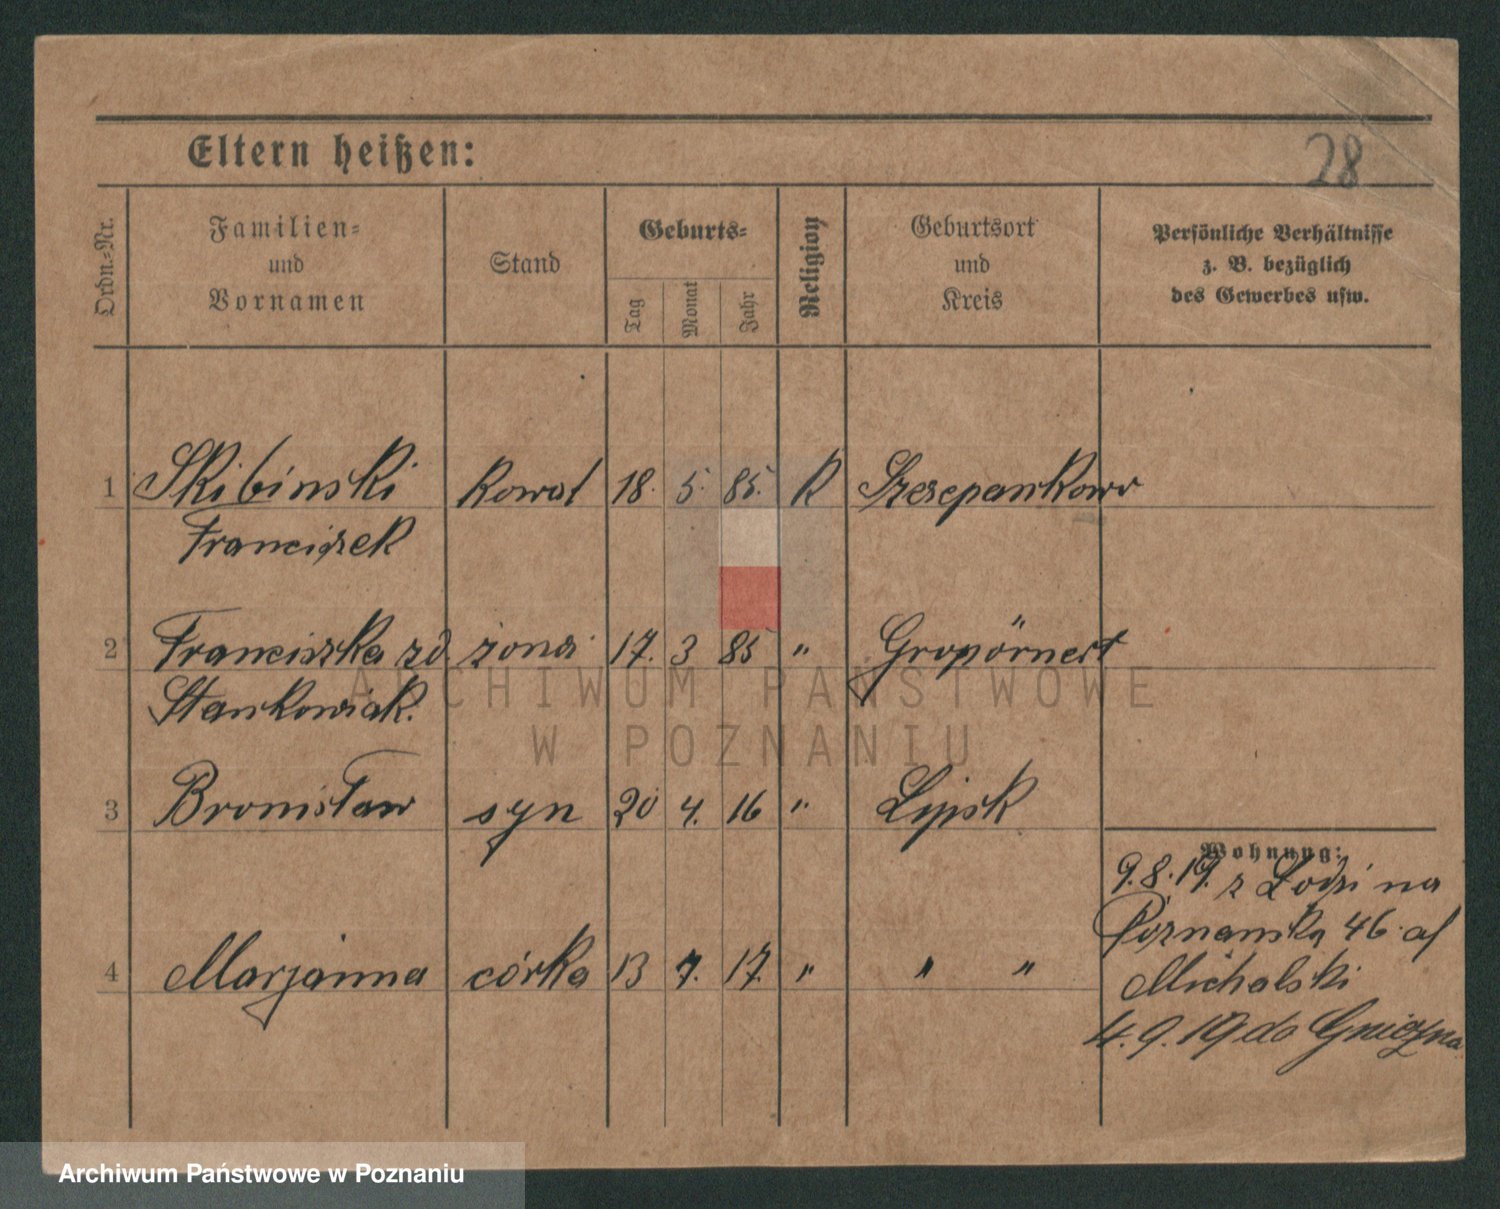 28
Eltern heißen:
Ordn.-Nr.
Familien-
und
Vornamen
Stand
Geburts-
Tag
Monat
Jahr
Religion
Geburtsort
und
Kreis
Persönliche Verhältnisse
z. B. bezüglich
des Gewerbes usw.
1 Skibinski kowal 18. 5. 85. K Szczepankowo
Franciszek
2 Franciszka zd. żona 17. 3 85 "
Stankowiak.
ARCHIWUM PAŃSTWOWE
W POZNANIU
3 Bronisław syn 20 4. 16 " Lipsk
Wohnung:
9.8.19. z Łodzi na
Poznanska 46
4 Marjanna córka 13 7. 17. " " "
Michalski
4.9.19 do Gniezna
Archiwum Państwowe w Poznaniu